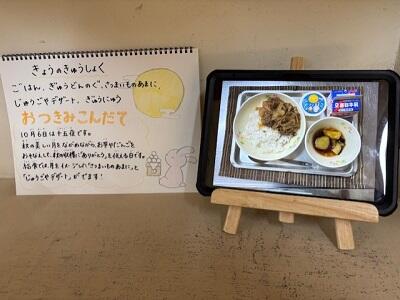 きょうのきゅうしょく
ごはん、ぎゅうどんのぐ、さつまいものあまに、
じゅうごやデザート、ぎゅうにゅう
おつきみこんだて
10月6日は十五夜です。
秋の美しい月をながめながら、お芋やだんごを
おそなえして、秋の収穫に「ありがとう」を伝える日です。
給食では、月をイメージした「さつまいものあまに」と
「じゅうごやデザート」がでます！